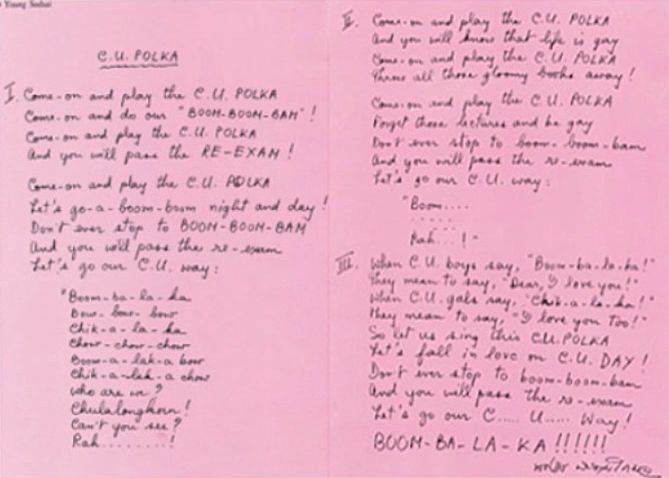 Young Sodsai
C.U. POLKA
I. Come-on and play the C.U. POLKA
Come-on and do our "BOOM-BOOM-BAM"!
Come-on and play the C.U. POLKA
And you will pass the RE-EXAM!
Come-on and play the C.U. POLKA
Let's go-a-boom-boom night and day!
Don't ever stop to BOOM-BOOM-BAM
And you will pass the re-exam
Let's go our C.U. way:
"Boom-ba-la-ka
Bow-bow-bow
Chik-a-la-ka
Chow-chow-chow
Boom-a-lak-a bow
Chik-a-lak-a chow
who are we?
Chulalongkorn!
Can't you see?
Rah.........!
II. Come-on and play the C.U. POLKA
And you will know that life is gay
Come-on and play the C.U. POLKA
Throw all those gloomy books away!
Come-on and play the C.U. POLKA
Forget those lectures and be gay
Don't ever stop to boom-boom-bam
And you will pass the re-exam
Let's go our C.U. way:
"Boom....
......
Rah...!"
III. When C.U. boys say, "Boom-ba-la-ka!"
They mean to say, "Dear, I love you!"
When C.U. gals say, "Chik-a-la-ka!"
They mean to say, "I love you too!"
So let us sing this C.U. POLKA
Let's fall in love on C.U. DAY!
Don't ever stop to boom-boom-bam
And you will pass the re-exam
Let's go our C..... U..... Way!
BOOM-BA-LA-KA!!!!!!